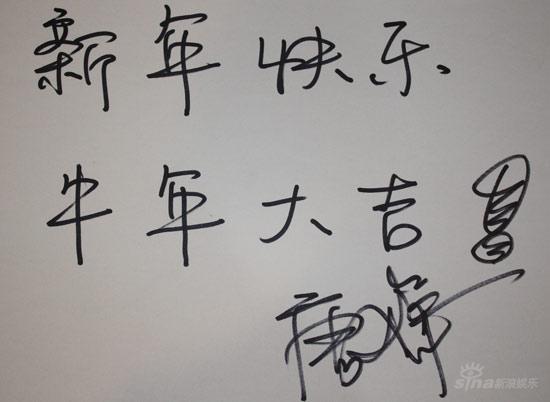 新年快乐
牛年大吉
sina新浪娱乐